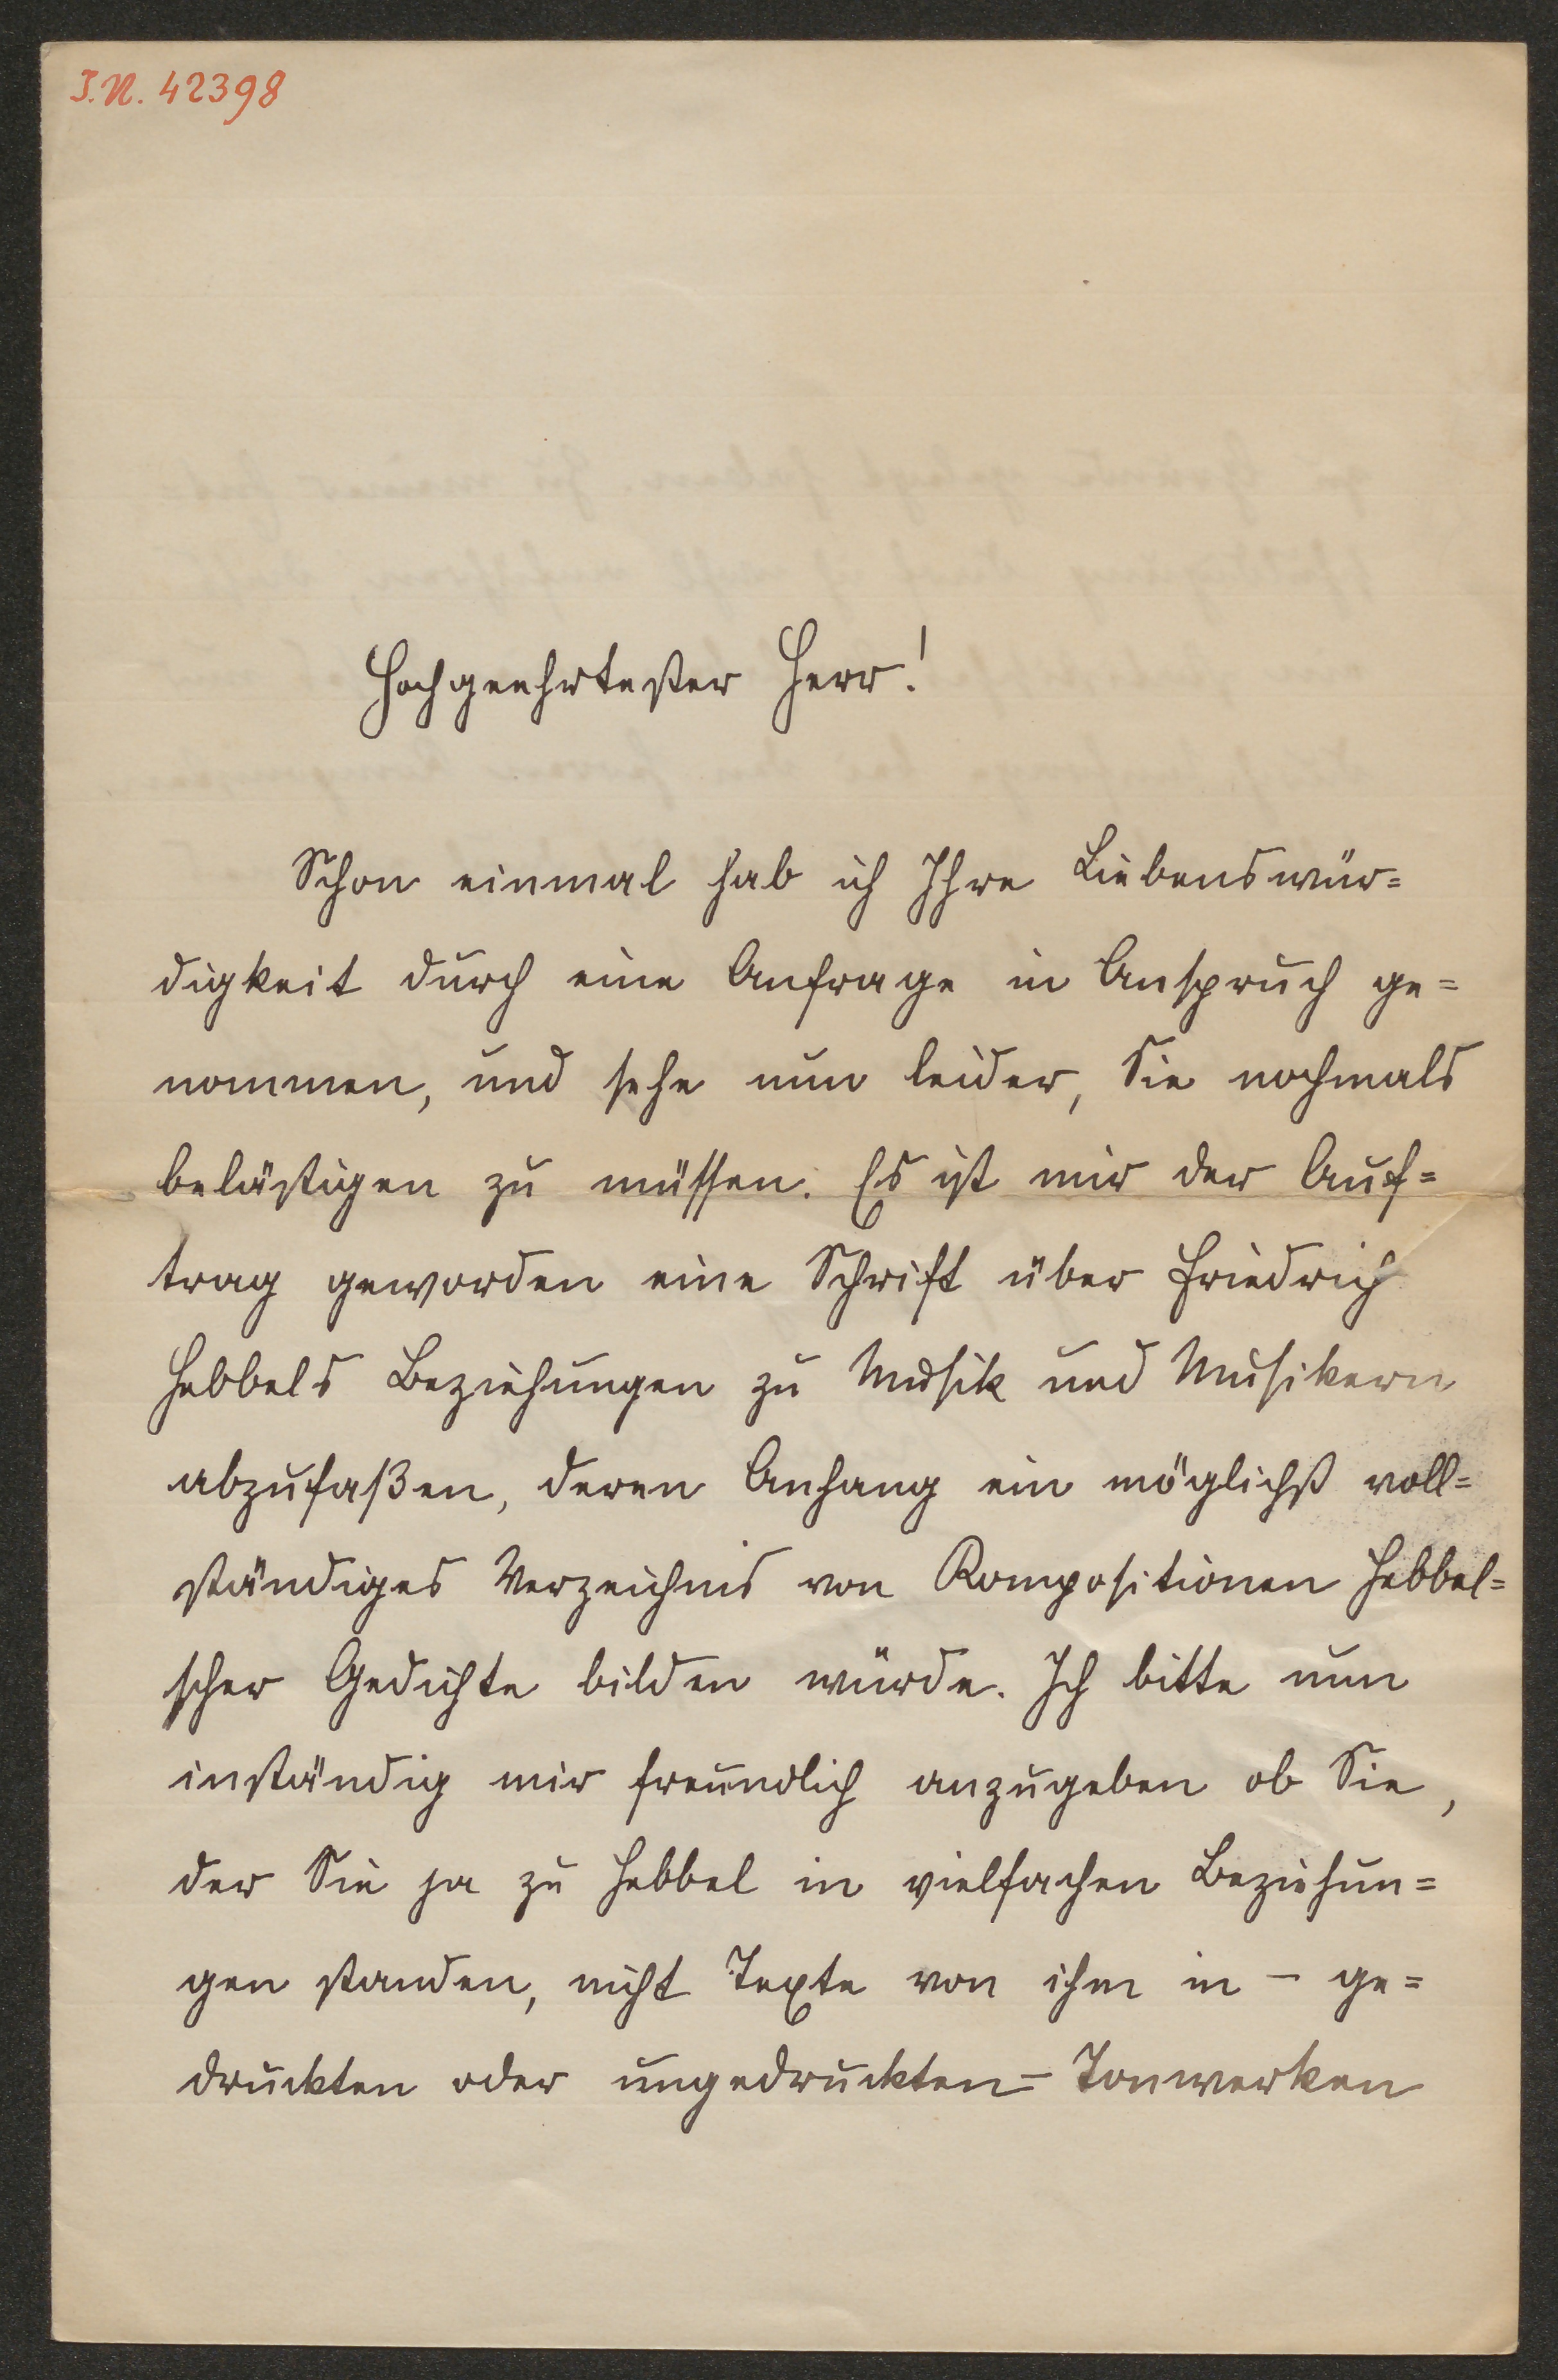 I.N. 42398
Hochgeehrtester Herr!
Schon einmal hab ich Ihre Liebenswür=
digkeit durch eine Anfrage in Anspruch ge=
nommen, und sehe nun leider, Sie nochmals
belästigen zu müssen. Es ist mir der Auf=
trag geworden eine Schrift über Friedrich
Hebbels Beziehungen zu Musik und Musikern
abzufaßen, deren Anhang ein möglichst voll=
ständiges Verzeichnis von Kompositionen Hebbel=
scher Gedichte bilden würde. Ich bitte nun
inständig mir freundlich anzugeben ob Sie,
der Sie ja zu Hebbel in vielfachen Beziehun=
gen standen, nicht Texte von ihm in – ge=
druckten oder ungedruckten – Tonwerken